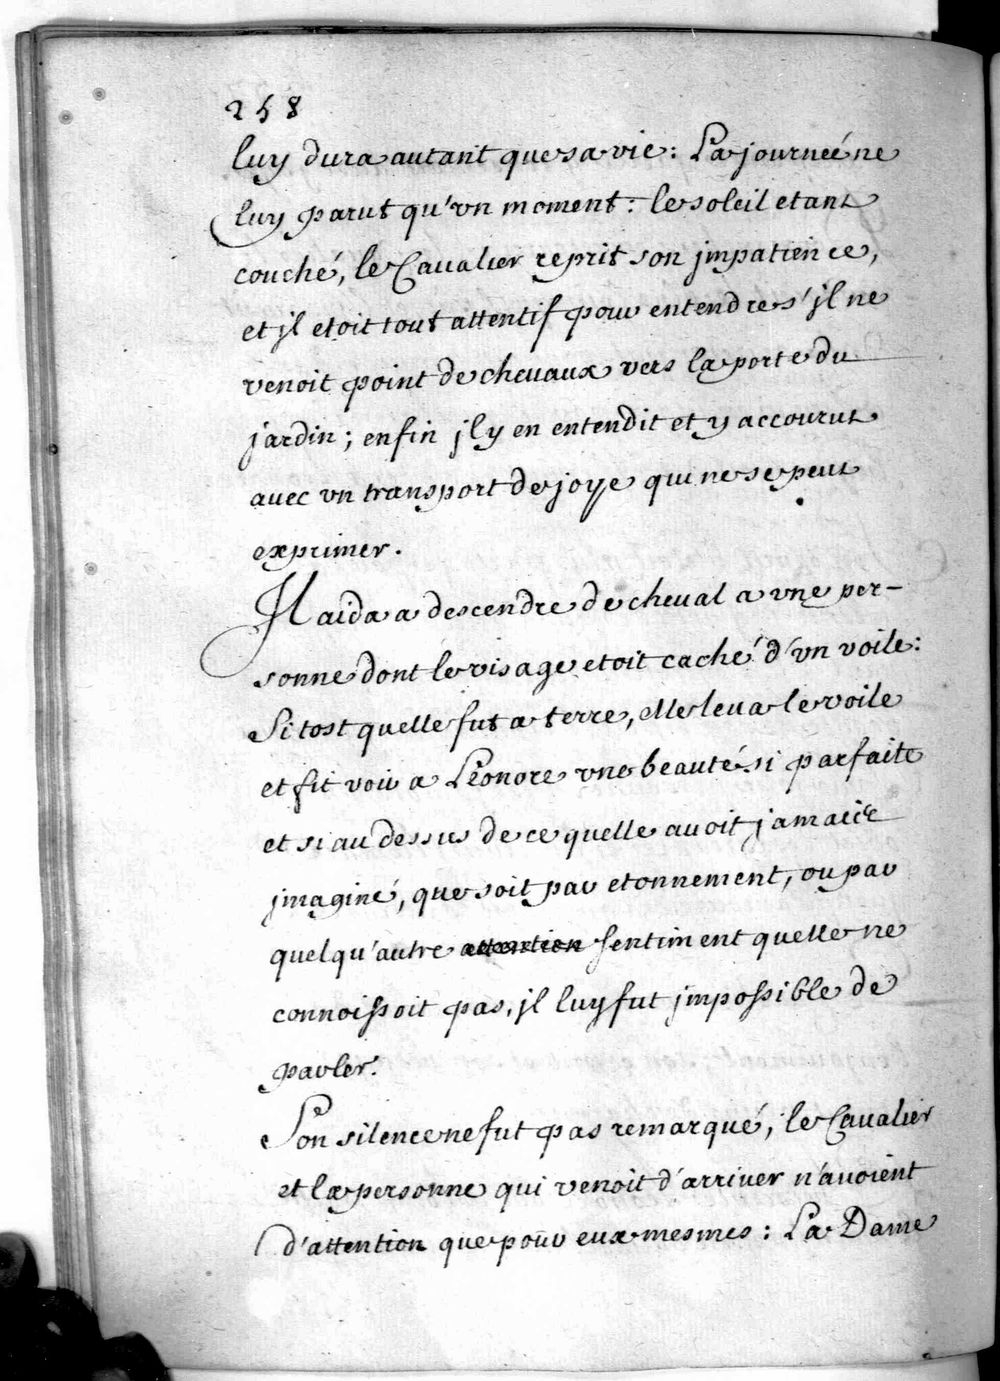 258
luy dura autant que sa vie : La journeé ne
luy parut qu'vn moment : le soleil etant
couché, le Cavalier reprit son jmpatience,
et jl etoit tout attentif pour entendre s'jl ne
venoit point de chevaux vers la porte du
jardin ; enfin jl y en entendit et y accourut
avec vn transport de joye qui ne se peut
exprimer.
Jl aida a descendre de cheval a vne per-
sonne dont le visage etoit caché d'vn voile :
Si tost quelle fut a terre, elle leva le voile
et fit voir a Léonore vne beauté si parfaite
et si au dessus de ce quelle avoit jamais
jmaginé, que soit par etonnement, ou par
quelqu'autre attention sentiment quelle ne
connoissoit pas, jl luy fut jmpossible de
parler.
Son silence ne fut pas remarqué, le Cavalier
et la personne qui venoit d'arriver n'avoient
d'attention que pour eux mesmes : La Dame